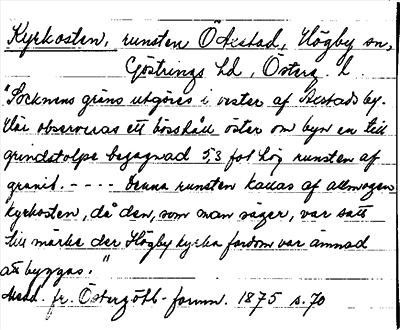 Kyrkosten, runsten Ödestad, Högby sn,
Göstrings hd, Österg. l.
"Socknens gräns utgöres i vester af Åestads by.
Här observeras ett bösshåll öster om byn en till
grindstolpe begagnad 5,3 fot hög runsten af
granit. - - - - Denna runsten kallas af allmogen
kyrkosten, då den, som man säger, var satt
till märke der Högby kyrka fordom var ämnad
att byggas."
Medd. fr. Östergötl. forum. 1875 s. 70